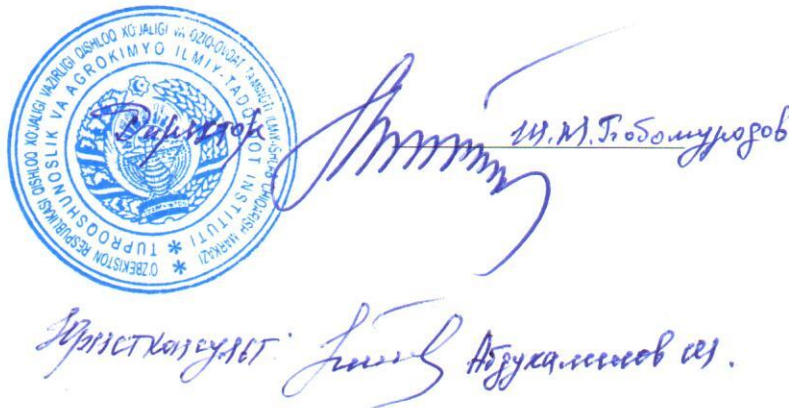 O'ZBEKISTON RESPUBLIKASI QISHLOQ XO'JALIGI VAZIRLIGI QISHLOQ XO'JALIGI VA OZIQ-OVQAT TA'MINOTI ILMIY-ISHLAB CHIQARISH MARKAZI
TUPROQSHUNOSLIK VA AGROKIMYO ILMIY-TADQIQOT INSTITUTI
Директор Ш.М.Бобомуродов
Юристконсульт: